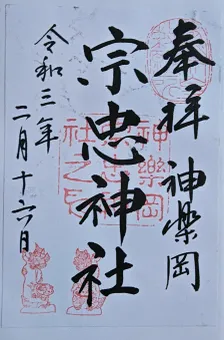 奉拝 神楽岡
宗忠神社
令和三年
二月十六日
神楽岡
宗忠神
社之印